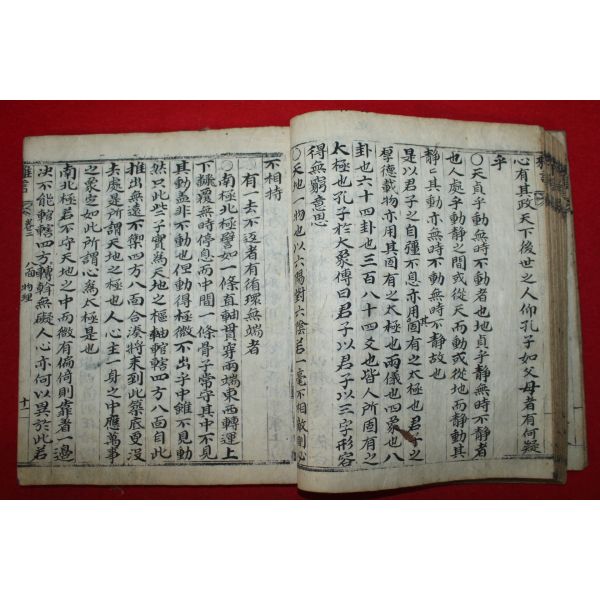 心有其政天下後世之人仰孔子如父母者有何疑
乎
〇天貞乎動無時不動者也地貞乎靜無時不靜者
也人處乎動靜之間或從天而動或從地而靜動其
靜靜其動亦無時不動無時不靜故也
是以君子之自彊不息亦用其固有之太極也君子之
厚德載物亦用其固有之太極也兩儀也四象也八
卦也六十四卦也三百八十四爻也皆人所固有之
太極也孔子於大象傳曰君子以君子以三字形容
得無窮意思
〇天地一物也以六陽對六陰若一毫不相敵則心
不相持
〇有一去不返者有循環無端者
〇南極北極譬如一條直軸貫穿兩端東西轉運上
下飜覆無時停息而中間一條骨子常守其中不見
其動盖非不動也但動得極微不出乎中雖不見動
然只此些子實爲天地之樞軸轄轄四方八面自此
推出無遠不禦四方八面合湊將來到此築底更沒
去處是所謂天地之極也人心主一身之中應萬事
之衆空如此所謂心爲太極是也
南北極若不守天地之中而微有偏倚則靠者一邊
決不能轄轄四方轉斡無礙人心亦何以異於此若
雜言
卷一
物理
十一